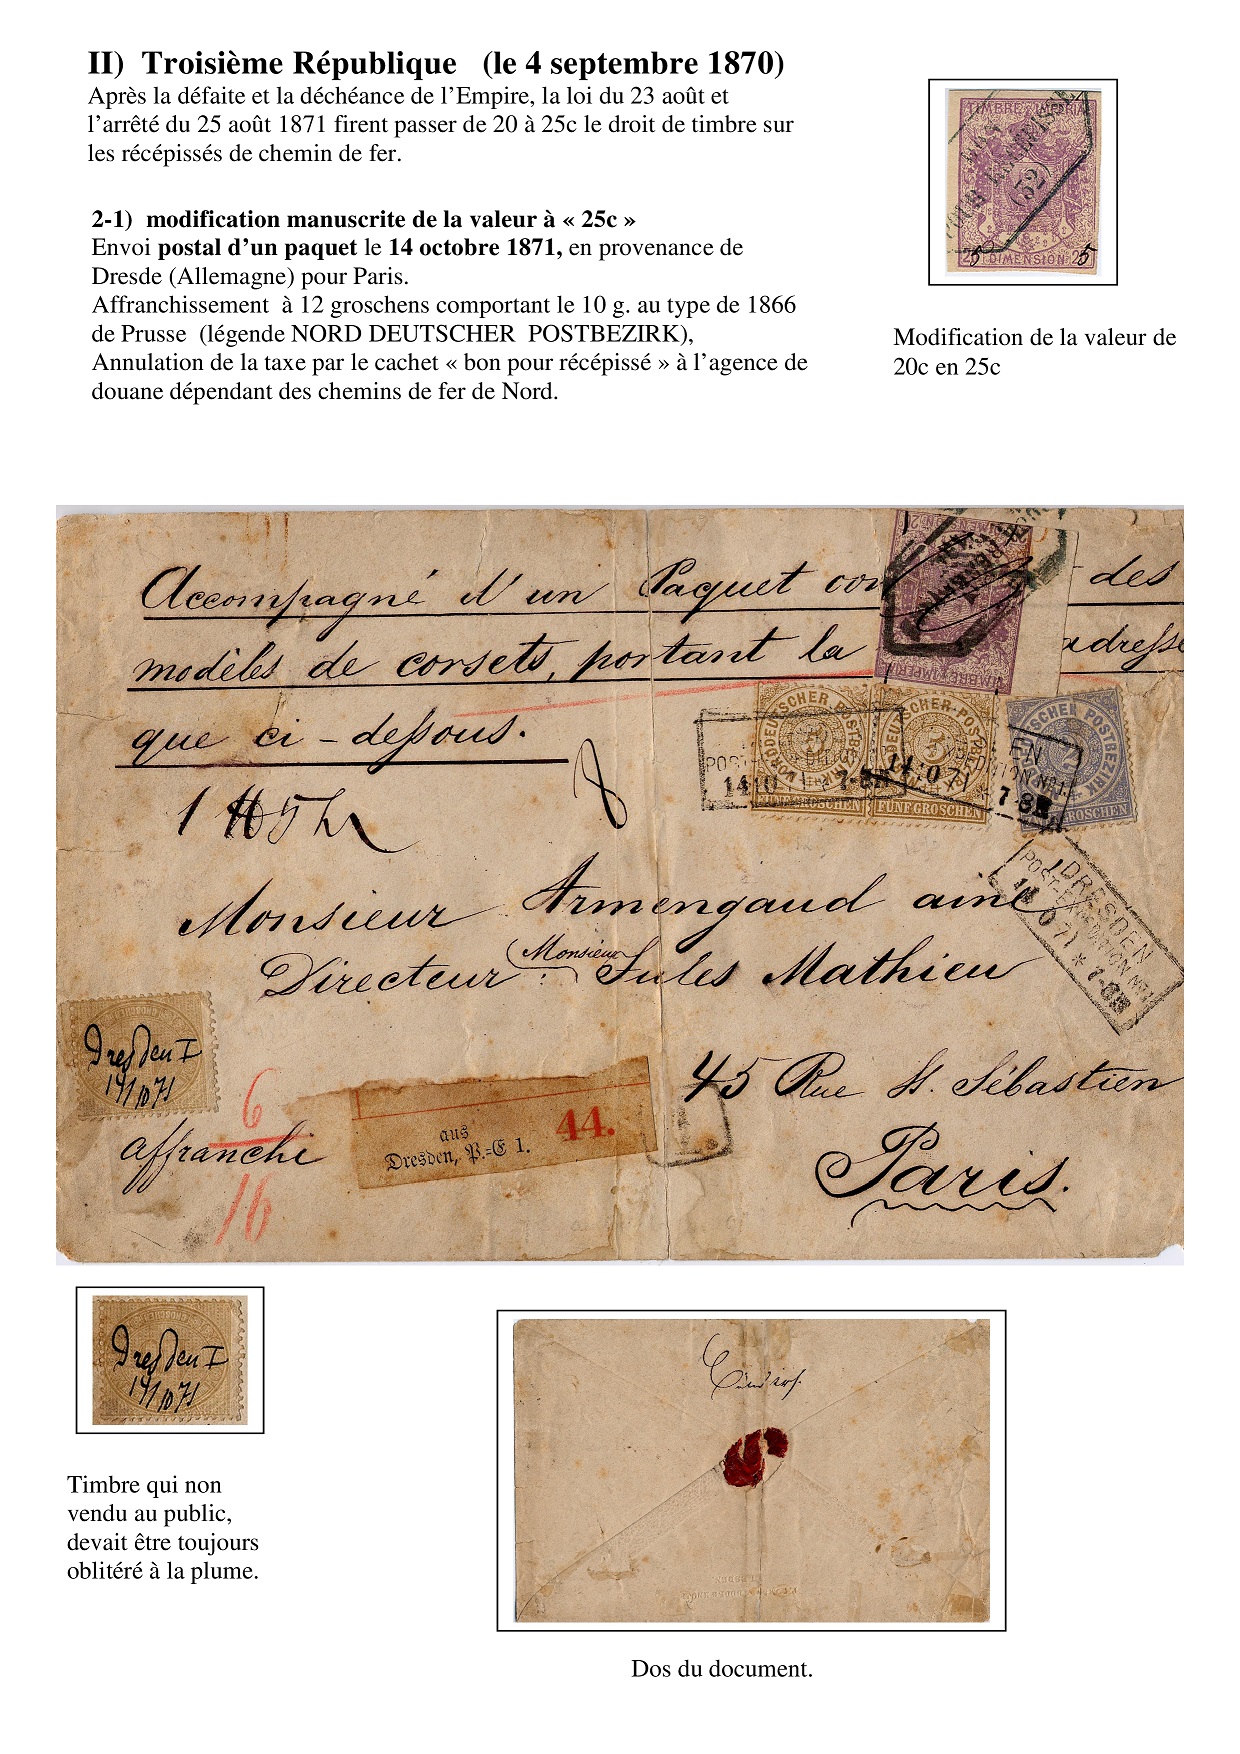 II) Troisième République (le 4 septembre 1870)
Après la défaite et la déchéance de l’Empire, la loi du 23 août et
l’arrêté du 25 août 1871 firent passer de 20 à 25c le droit de timbre sur
les récépissés de chemin de fer.
2-1) modification manuscrite de la valeur à « 25c »
Envoi postal d’un paquet le 14 octobre 1871, en provenance de
Dresde (Allemagne) pour Paris.
Affranchissement à 12 groschens comportant le 10 g. au type de 1866
de Prusse (légende NORD DEUTSCHER POSTBEZIRK),
Annulation de la taxe par le cachet « bon pour récépissé » à l’agence de
douane dépendant des chemins de fer de Nord.
TIMBRE IMPERIAL
(52)
DIMENSION
Modification de la valeur de
20c en 25c
Accompagné d'un Paquet des
modèles de corsets, portant la adresse
que ci-dessous.
NORDDEUTSCHER POSTBEZIRK
FÜNF GROSCHEN
DRESDEN
POST-EXPEDITION No 1
Monsieur Armengaud ainé
Directeur Monsieur Jules Mathieu
45 Rue St. Sébastien
Paris.
Dresden I
14/10 71
6
affranchi
16
aus
Dresden, P.=E 1.
44.
Dresden I
14/10 71
Timbre qui non
vendu au public,
devait être toujours
oblitéré à la plume.
Dos du document.